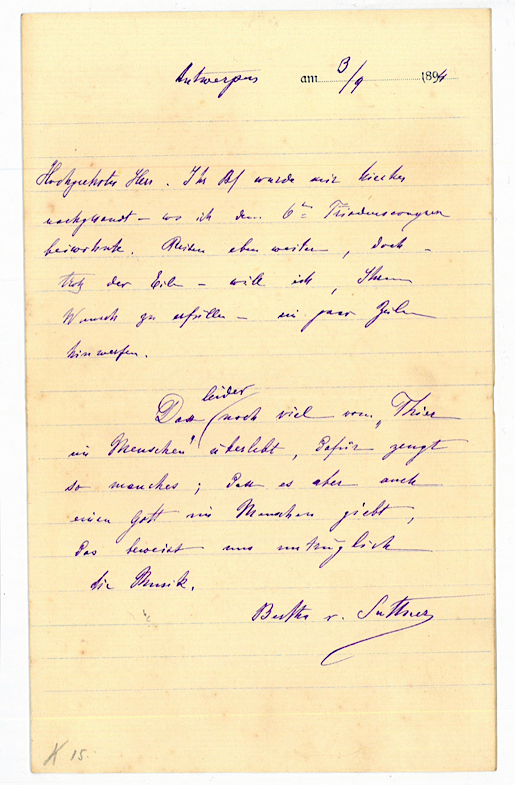 Antwerpen am 3/9 1894
Hochgeehrter Herr. Ihr Brf wurde mir hierher
nachgesandt – wo ich dem 6ten Friedenscongress
beiwohnte. Reisen eben weiter, doch –
trotz der Eile – will ich, Ihren
Wunsch zu erfüllen – ein paar Zeilen
hinwerfen.
leider
Dass noch viel vom „Thier
im Menschen" überlebt, dafür zeugt
so manches; dass es aber auch
einen Gott im Menschen giebt,
das beweist uns untrüglich
die Musik.
Bertha v. Suttner
15.